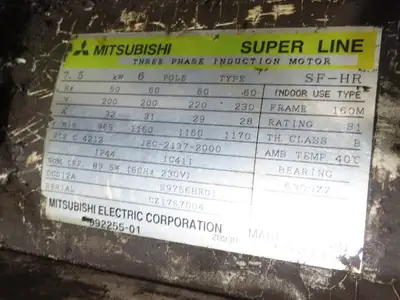 MITSUBISHI SUPER LINE
THREE PHASE INDUCTION MOTOR
7.5 kW 6 POLE TYPE SF-HR
Hz 50 60 60 60 INDOOR USE TYPE
V 200 200 220 230 FRAME 160M
A 32 31 29 28 RATING S1
min 965 1160 1160 1170 TH.CLASS B
C 4212 JEC-2137-2000 AMB TEMP. 40℃
IP44 IC411 BEARING
NOM.EFF. 89.5% (60Hz 230V)
SERIAL
MITSUBISHI ELECTRIC CORPORATION
992255-01